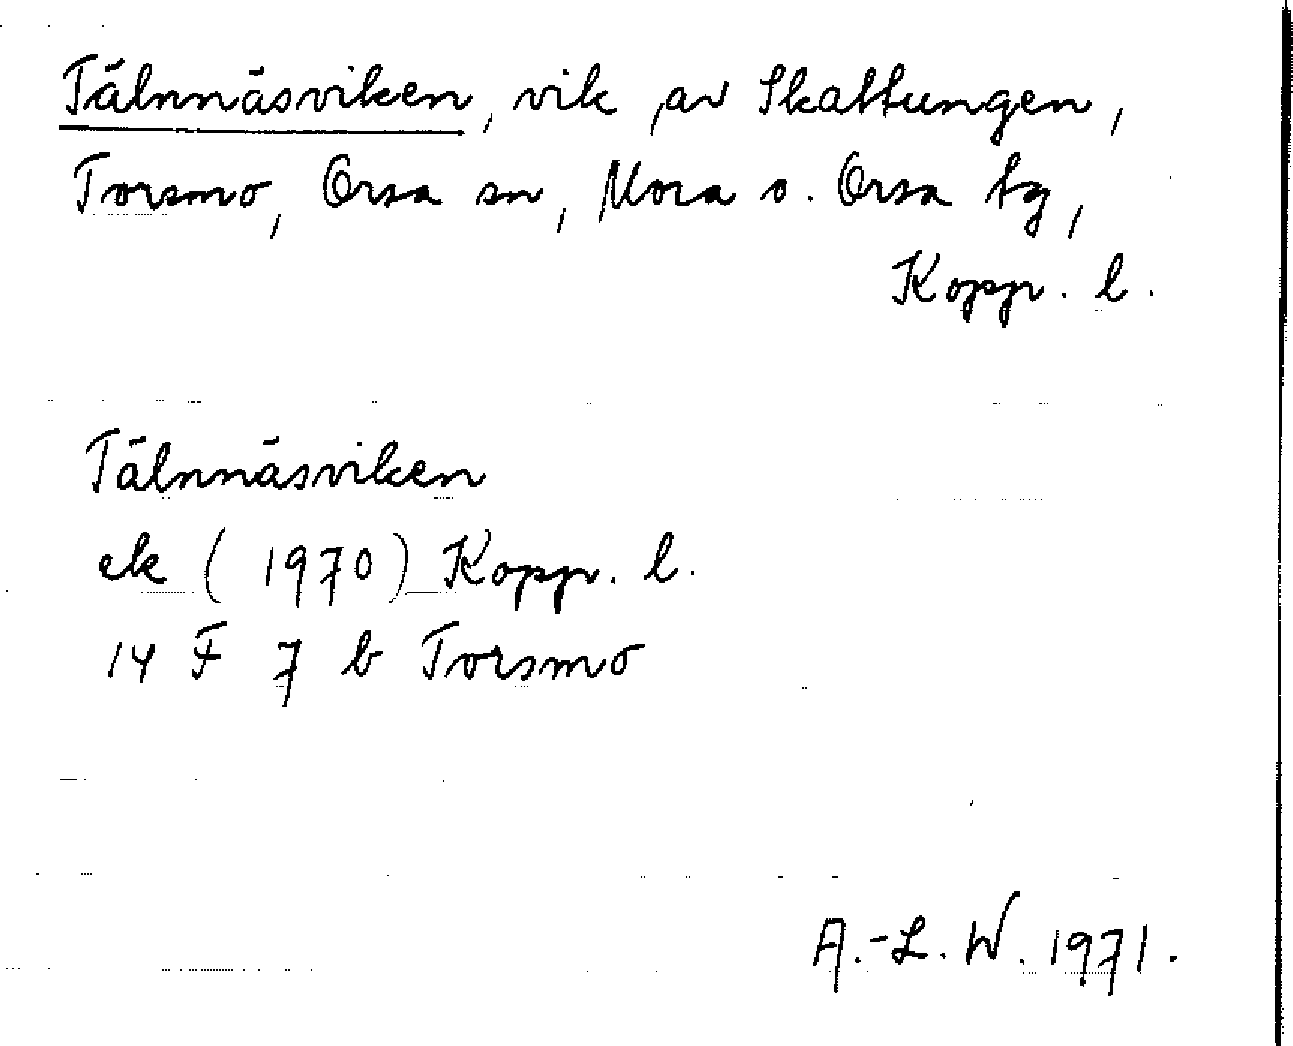 Tälnnäsviken, vik av Skattungen,
Torsmo, Orsa sn, Mora o. Orsa tg,
Kopp. l.
Tälnnäsviken
ek (1970) Kopp. l.
14 F 7 b Torsmo
A.-L. W. 1971.